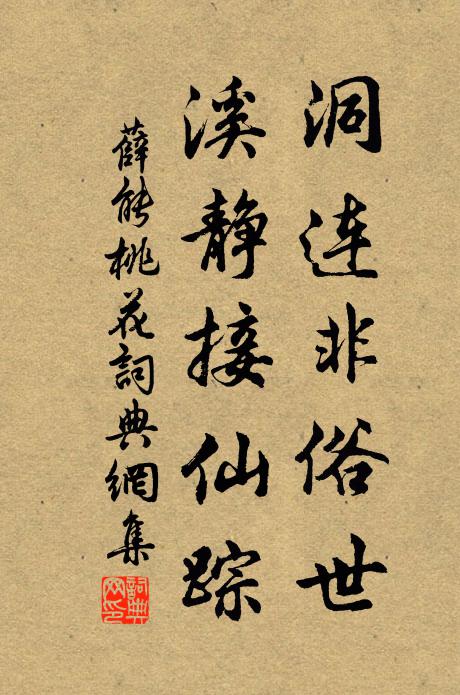 洞连非俗世
溪静接仙踪
薛能桃花詞典網集
詞典网印